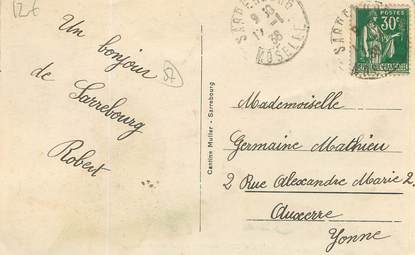 126
Un bonjour
de Sarrebourg
Robert
57
Cantine Muller - Sarrebourg
SARREBOURG
MOSELLE
POSTES
30c
Mademoiselle
Germaine Mathieu
2 Rue Alexandre Marie 2
Auxerre
Yonne